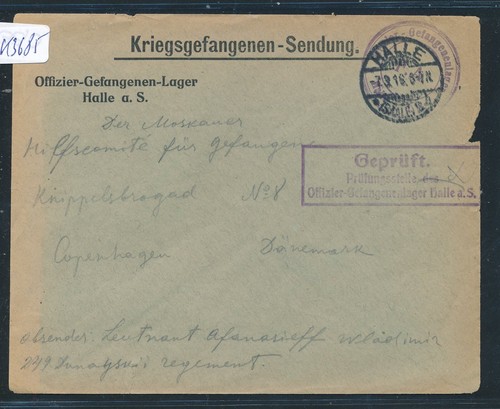 Kriegsgefangenen-Sendung.
Offizier-Gefangenen-Lager
Halle a. S.
HALLE
Der Moskauer
Hilfscomité für gefangene
Geprüft.
Prüfungsstelle des
Offizier-Gefangenenlager Halle a. S.
Knippelsbrogad No 8
Copenhagen Dänemark
absender: Leutnant Afanasieff Wladimir
249. Dunaysky regement.